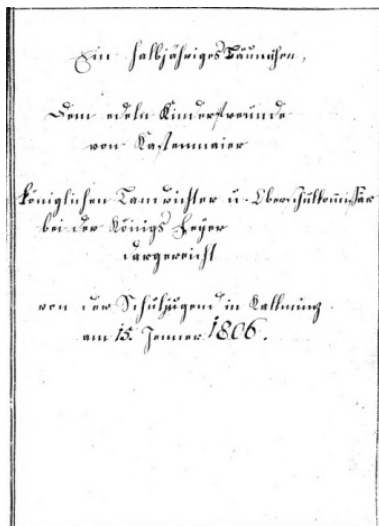 Ein halbjähriges Bäumchen,
Dem edeln Kinderfreunde
von Kastenmaier
königlichen Landrichter u. Oberschulkommissär
bei der Königs Feyer
dargereicht
von der Schuljugend in Kallmünz
am 15. Jenner 1806.